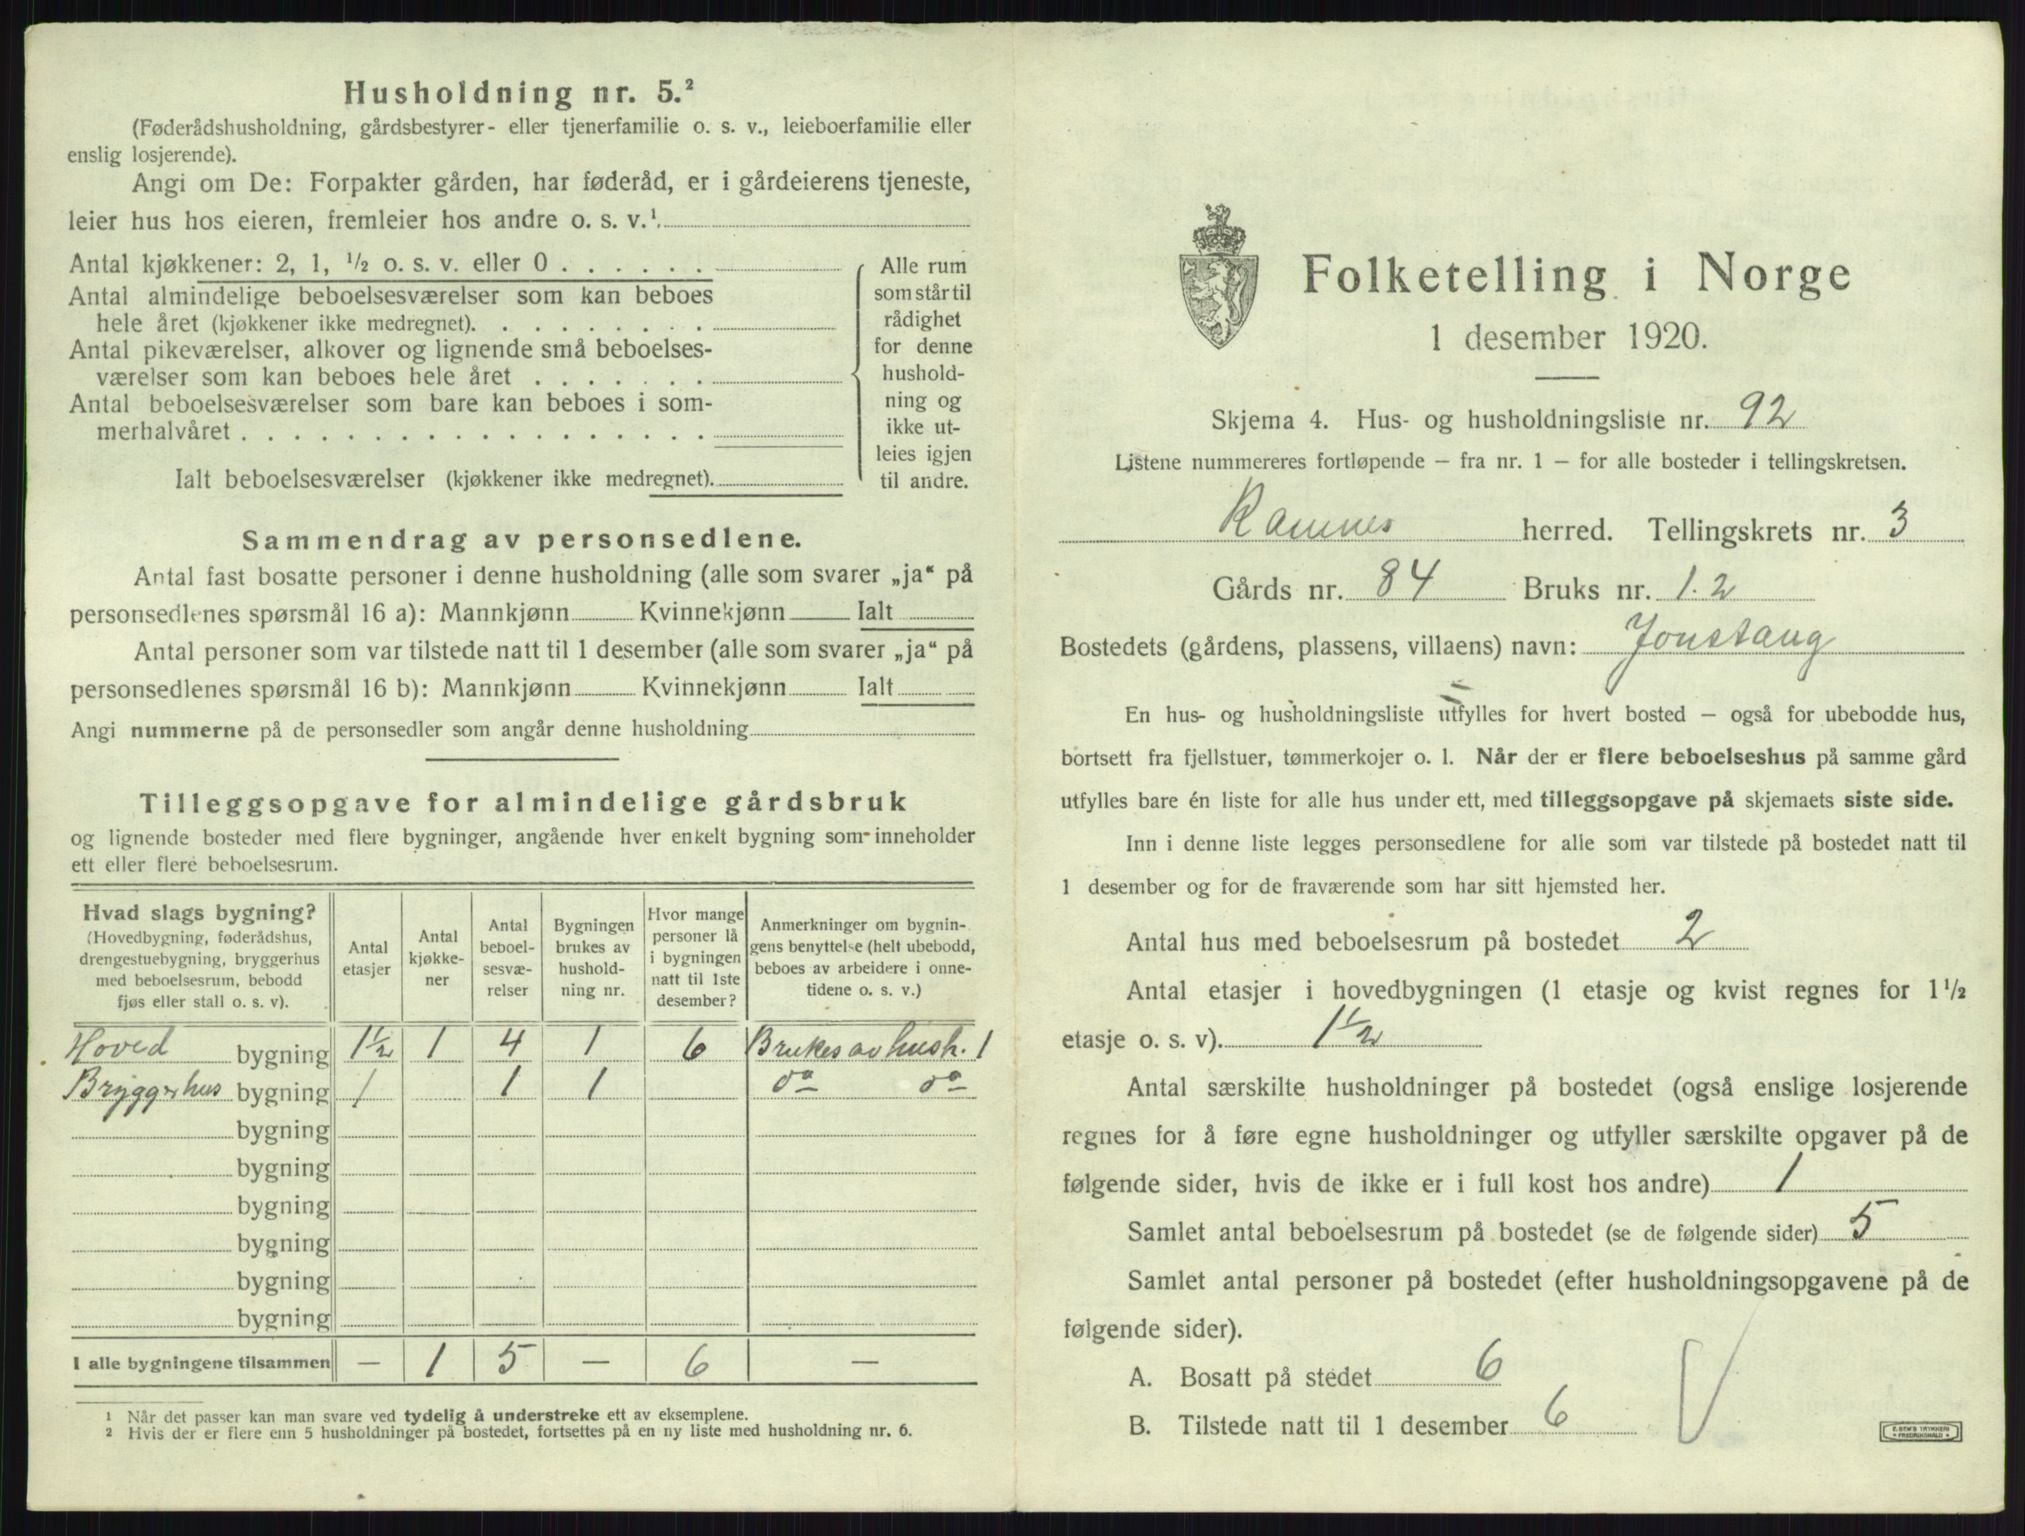 Husholdning nr. 5.²
(Føderådshusholdning, gårdsbestyrer- eller tjenerfamilie o. s. v., leieboerfamilie eller
enslig losjerende).
Angi om De: Forpakter gården, har føderåd, er i gårdeierens tjeneste,
leier hus hos eieren, fremleier hos andre o. s. v.¹.
Antal kjøkkener: 2, 1, ½ o. s. v. eller 0
Antal almindelige beboelsesværelser som kan beboes
hele året (kjøkkener ikke medregnet).
Antal pikeværelser, alkover og lignende små beboelses-
værelser som kan beboes hele året
Antal beboelsesværelser som bare kan beboes i som-
merhalvåret
Ialt beboelsesværelser (kjøkkener ikke medregnet).
Alle rum
som står til
rådighet
for denne
hushold-
ning og
ikke ut-
leies igjen
til andre.
Sammendrag av personsedlene.
Antal fast bosatte personer i denne husholdning (alle som svarer „ja“ på
personsedlenes spørsmål 16 a): Mannkjønn Kvinnekjønn Ialt
Antal personer som var tilstede natt til 1 desember (alle som svarer „ja“ på
personsedlenes spørsmål 16 b): Mannkjønn Kvinnekjønn Ialt
Angi nummerne på de personsedler som angår denne husholdning
Tilleggsopgave for almindelige gårdsbruk
og lignende bosteder med flere bygninger, angående hver enkelt bygning som inneholder
ett eller flere beboelsesrum.
Hvad slags bygning?
(Hovedbygning, føderådshus,
drengestuebygning, bryggerhus
med beboelsesrum, bebodd
fjøs eller stall o. s. v).
Antal
etasjer
Antal
kjøkke-
ner
Antal
beboel-
sesvæ-
relser
Bygningen
brukes av
hushold-
ning nr.
Hvor mange
personer lå
i bygningen
natt til 1ste
desember?
Anmerkninger om bygnin-
gens benyttelse (helt ubebodd,
beboes av arbeidere i onne-
tidene o. s. v.)
Hoved bygning 1½ 1 4 1 6 Brukes av hush. 1
Bryggerhus bygning 1 1 1 do do
bygning
bygning
bygning
bygning
bygning
bygning
I alle bygningene tilsammen — 1 5 — 6 —
1 Når det passer kan man svare ved tydelig å understreke ett av eksemplene.
2 Hvis der er flere enn 5 husholdninger på bostedet, fortsettes på en ny liste med husholdning nr. 6.
Folketelling i Norge
1 desember 1920.
Skjema 4. Hus- og husholdningsliste nr. 92
Listene nummereres fortløpende — fra nr. 1 — for alle bosteder i tellingskretsen.
Ramnes herred. Tellingskrets nr. 3
Gårds nr. 84 Bruks nr. 1.2
Bostedets (gårdens, plassens, villaens) navn: Jonstang
En hus- og husholdningsliste utfylles for hvert bosted — også for ubebodde hus,
bortsett fra fjellstuer, tømmerkojer o. l. Når der er flere beboelseshus på samme gård
utfylles bare én liste for alle hus under ett, med tilleggsopgave på skjemaets siste side.
Inn i denne liste legges personsedlene for alle som var tilstede på bostedet natt til
1 desember og for de fraværende som har sitt hjemsted her.
Antal hus med beboelsesrum på bostedet 2
Antal etasjer i hovedbygningen (1 etasje og kvist regnes for 1½
etasje o. s. v). 1½
Antal særskilte husholdninger på bostedet (også enslige losjerende
regnes for å føre egne husholdninger og utfyller særskilte opgaver på de
følgende sider, hvis de ikke er i full kost hos andre) 1
Samlet antal beboelsesrum på bostedet (se de følgende sider) 5
Samlet antal personer på bostedet (efter husholdningsopgavene på de
følgende sider).
A. Bosatt på stedet 6
B. Tilstede natt til 1 desember 6